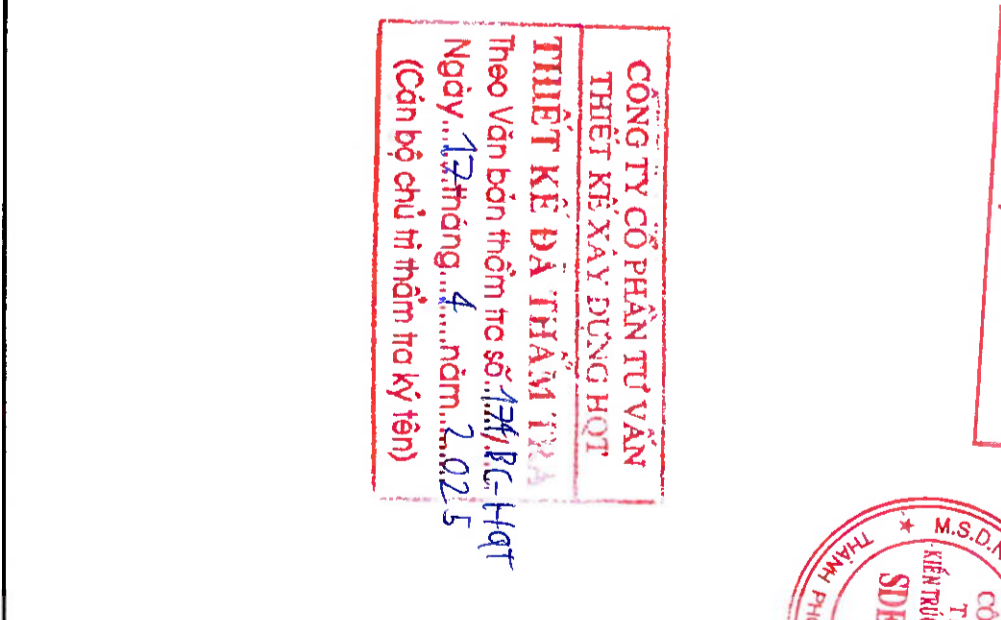 CÔNG TY CỔ PHẦN TƯ VẤN
THIẾT KẾ XÂY DỰNG HQT
THIẾT KẾ ĐÃ THẨM TRA
Theo Văn bản thẩm tra số 174/BC-HQT
Ngày 17 tháng 4 năm 2025
(Cán bộ chủ trì thẩm tra ký tên)
M.S.D.N
THÀNH PHỐ
KIẾN TRÚC